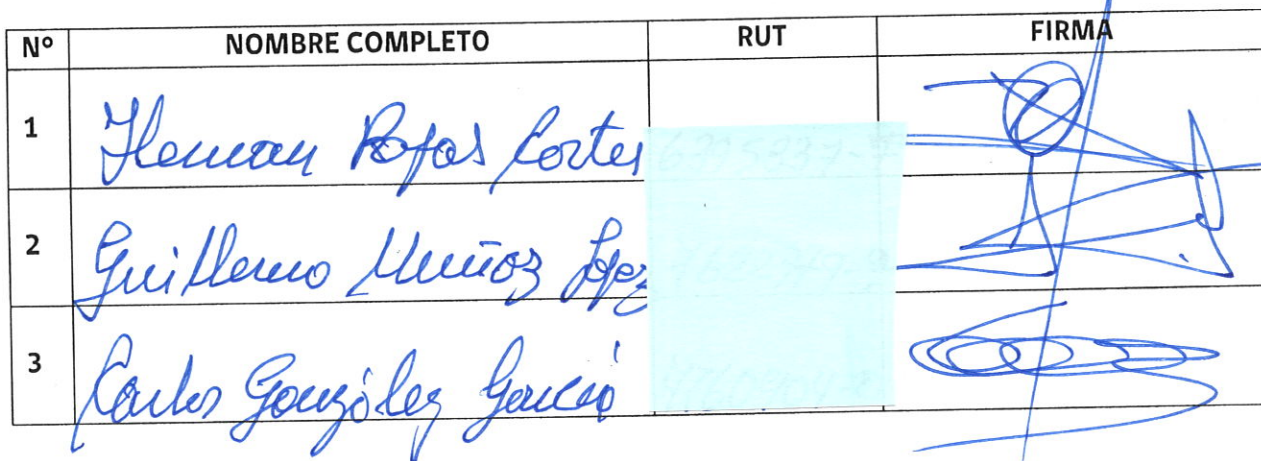 Nº NOMBRE COMPLETO RUT FIRMA
1 Hernan Rojas Cortes
2 Guillermo Muñoz López
3 Carlos González García